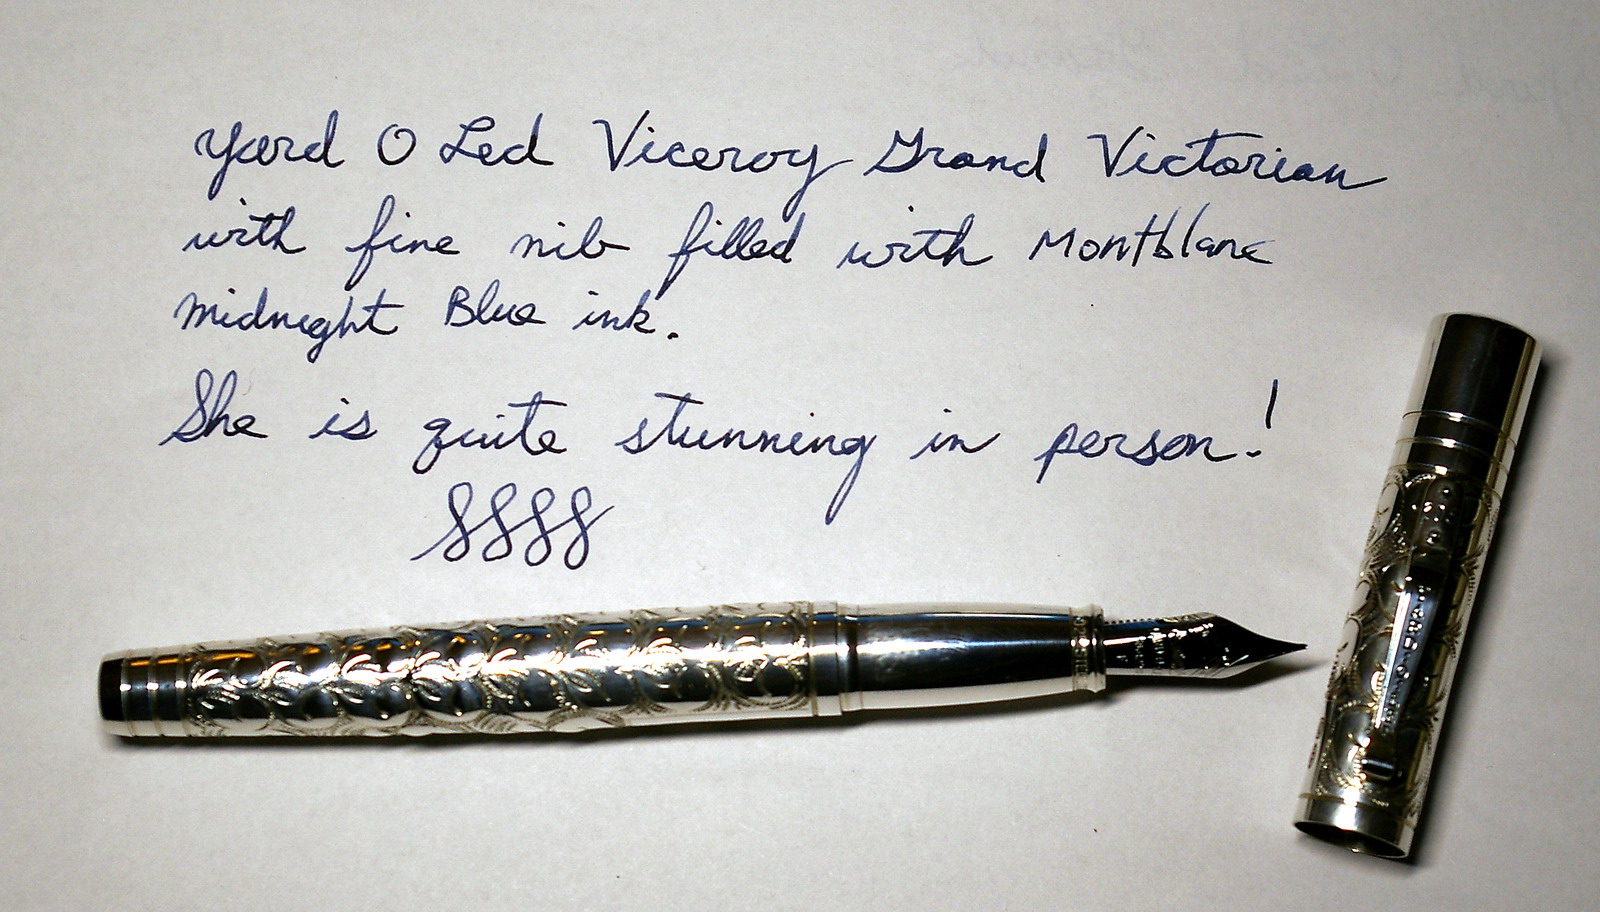 Yard O Led Viceroy Grand Victorian
with fine nib filled with Montblanc
midnight Blue ink.
She is quite stunning in person!
SSSS
YARD-O-LED